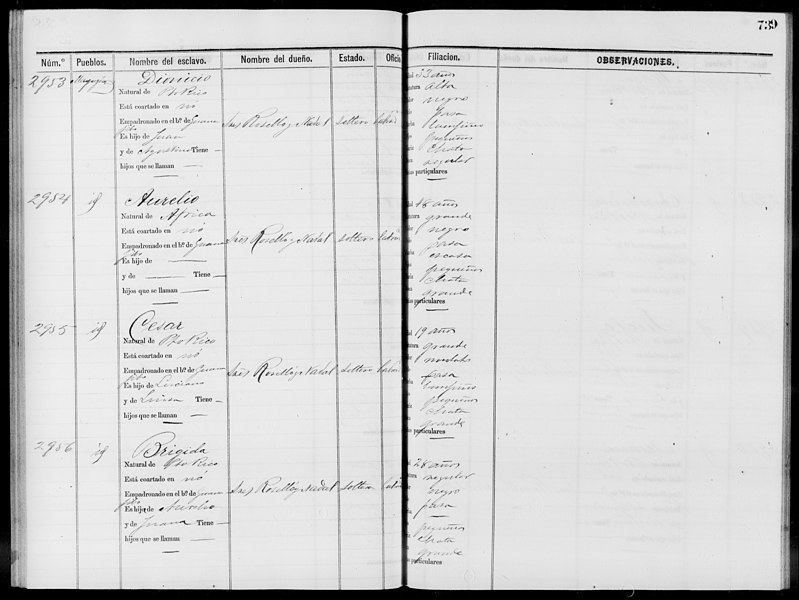 739
Núm.º Pueblos. Nombre del esclavo. Nombre del dueño. Estado. Oficio Filiacion. OBSERVACIONES.
2953 Mayagüez Dionicio
Natural de Pto Rico
Está coartado en no
Empadronado en el bº. de Juana
Es hijo de Juan
y de Agustina Tiene —
hijos que se llaman —
Sres Roselló y Nadal soltero labrór
33 años
alta
negro
pasa
lampiño
pequeños
chata
regular
particulares
2954 id Aurelio
Natural de Africa
Está coartado en no
Empadronado en el bº. de Juana
Es hijo de —
y de — Tiene —
hijos que se llaman —
Sres Roselló y Nadal soltero labrór
48 años
grande
negro
pasa
escasa
pequeños
chata
grande
particulares
2955 id Cesar
Natural de Pto Rico
Está coartado en no
Empadronado en el bº. de Juana
Es hijo de Luciano
y de Luisa Tiene —
hijos que se llaman —
Sres Roselló y Nadal soltero labrór
19 años
grande
pasa
lampiño
pequeños
chata
grande
particulares
2956 id Brigida
Natural de Pto Rico
Está coartado en no
Empadronado en el bº. de Juana
Es hija de Aurelio
y de Juana Tiene —
hijos que se llaman —
Sres Roselló y Nadal soltera labrór
28 años
regular
negro
pasa
—
pequeños
chata
grande
particulares